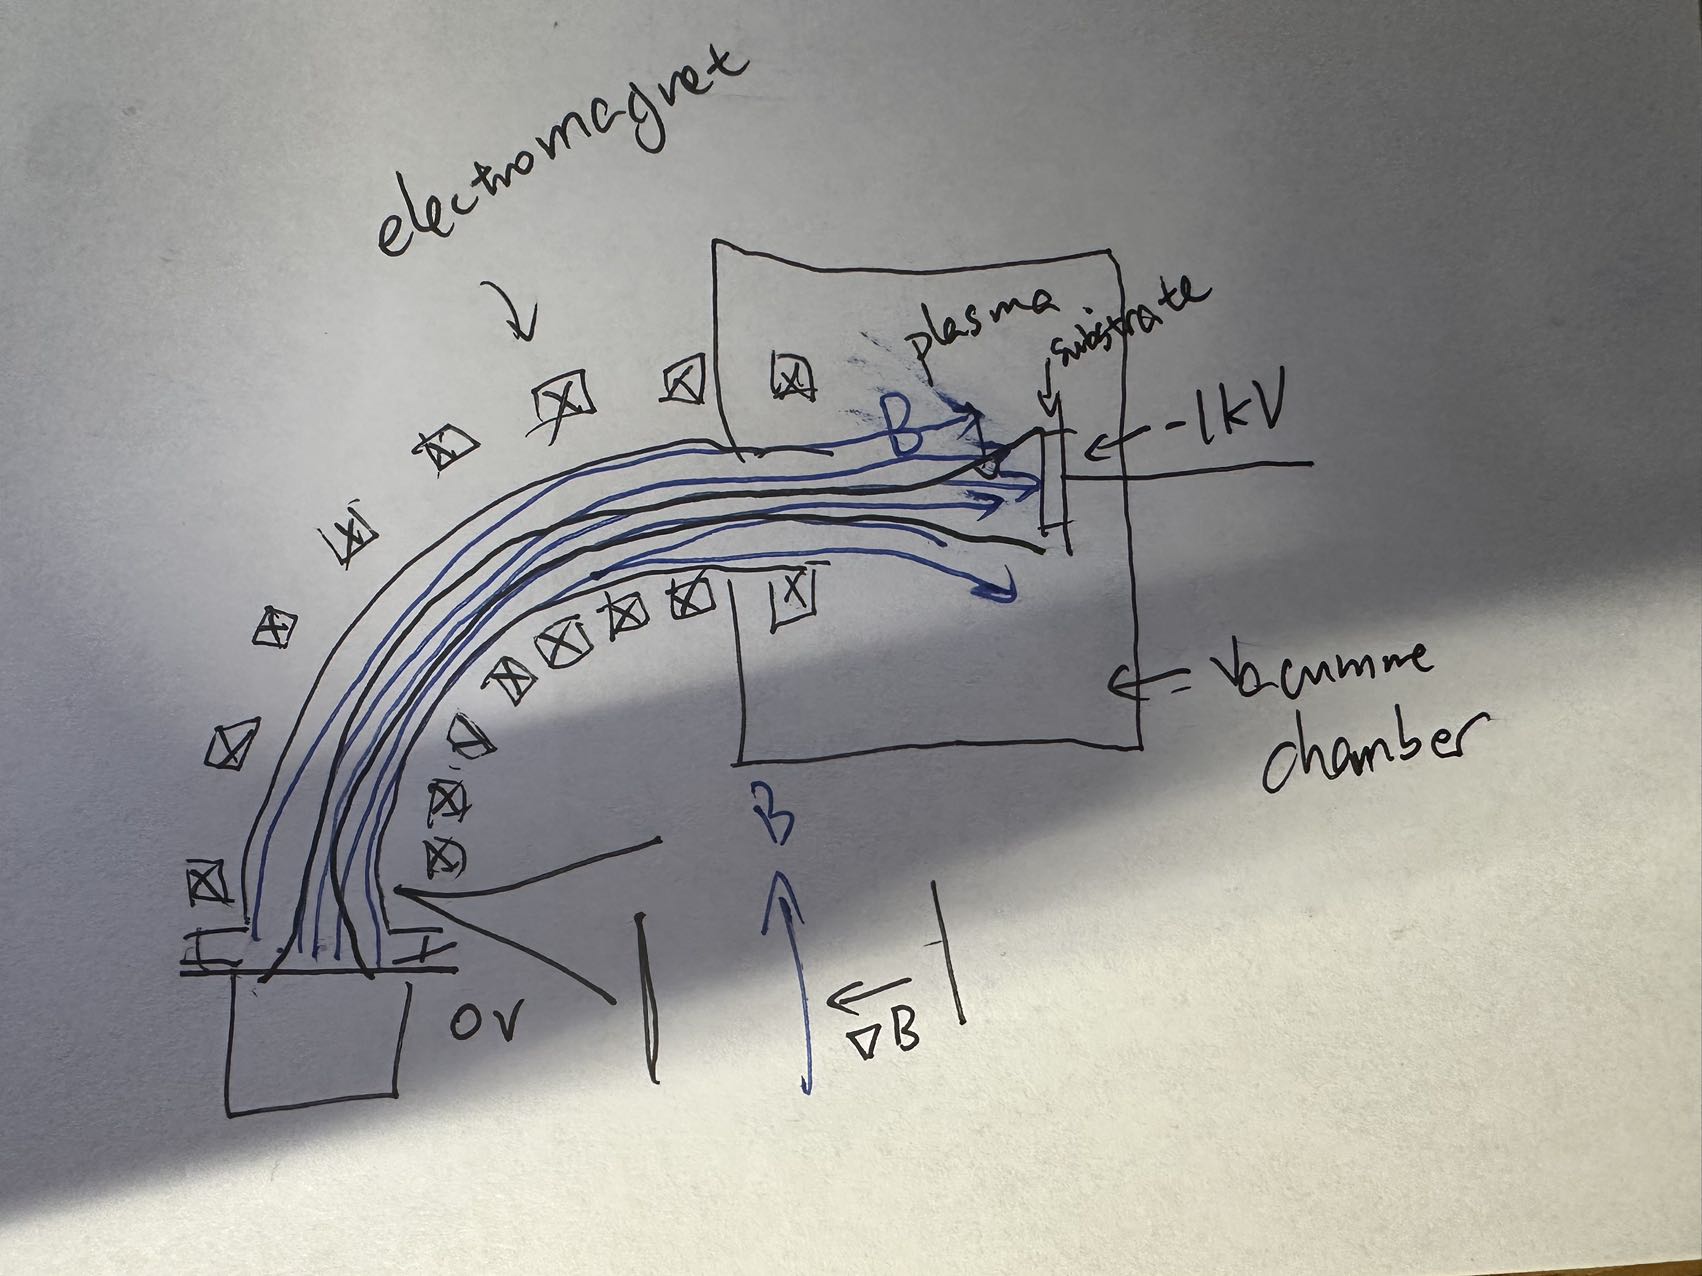 electromagnet
plasma
substrate
B
-1kV
Vacumme
chamber
B
0V
∇B